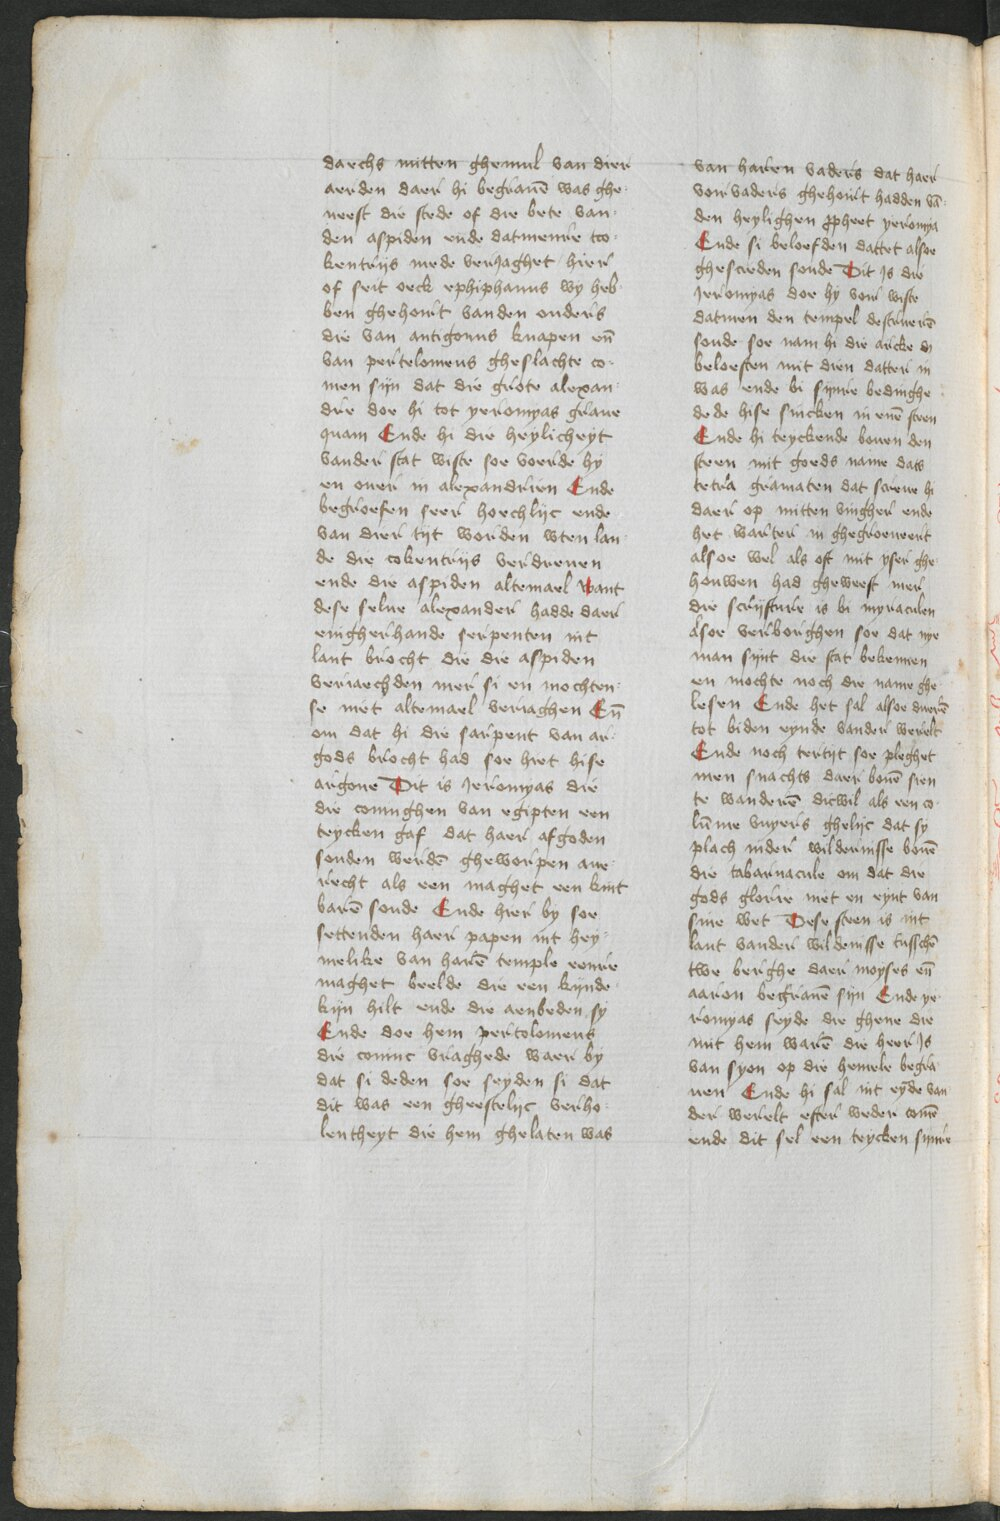 daechs mitten ghemul van dier
aerden daer hi begrauē was ghe-
neest die stede of die bete van-
den aspiden ende datmenre co-
kentrijs mede veriaghet hier
of seit oeck ephiphanus wy heb-
ben ghehoirt vanden ouders
die van antigonus knapen eñ
van pertolomeus gheslachte co-
men sijn dat die grote alexan-
dre doe hi tot yeromyas graue
quam Ende hi die heylicheyt
vander stat wiste soe voerde hy
en ouer in alexandrien Ende
begroefen seer hoechlijc ende
van dier tijt worden wten lan-
de die cokentrijs verdreuen
ende die aspiden altemael want
dese selue alexander hadde daer
enigherhande serpenten int
lant brocht die die aspiden
veriaechden mer si en mochten-
se niet altemael veriaghen Eñ
om dat hi die sarpent van ar-
gods brocht had soe hiet hise
argone Dit is Jeromyas die
die coninghen van egipten een
teycken gaf dat haer afgoden
souden werdē gheworpen aue-
recht als een maghet een kint
barē soude Ende hier by soe
settenden haer papen int hey-
melike van harē temple eenre
maghet beelde die een kijnde-
kijn hilt ende die aenbeden sy
Ende doe hem pertolomeus
die coninc vraghede waer by
dat si deden soe seyden si dat
dit was een gheestelijc verho-
lentheyt die hem ghelaten was
van haren vaders dat haer
voirvaders ghehoirt hadden vā-
den heylighen ppheet yeromya
Ende si beloefden dattet alsoe
ghescieden soude Dit Is die
Jeromyas doe hy voir wiste
datmen den tempel destruerē
soude soe nam hi die arcke eñ
beloesten mit dien datter in
was ende bi synre bedinghe
dede hise sincken in enē steen
Ende hi teyckende bouen den
steen mit goeds name dats
tetra gramaten dat screue hi
daer op mitten vingher ende
het warter in ghegroeueert
alsoe wel als oft mit yser ghe-
houwen had gheweest mer
die scrifture is bi myraculen
alsoe verborghen soe dat nye
man sijnt die stat bekennen
en mochte noch die name ghe-
lesen Ende het sal alsoe duerē
tot biden eynde vander werelt
Ende noch tertijt soe pleghet
men snachts daer bouē sien
te wanderē dicwil als een co-
lūme vuyers ghelijc dat sy
plach inder wildernisse bouē
die tabarnacule om dat die
gods glorie niet en eynt van
sine wet Dese steen is int
lant vander wildernisse tusschē
twe berghe daer moyses eñ
aaron begrauē sijn Ende ye-
romyas seyde die ghene die
mit hem warē die heer Is
van syon op die hemele begra-
uen Ende hi sal int eyde van
der werelt efter weder comē
ende dit sel een teycken synre